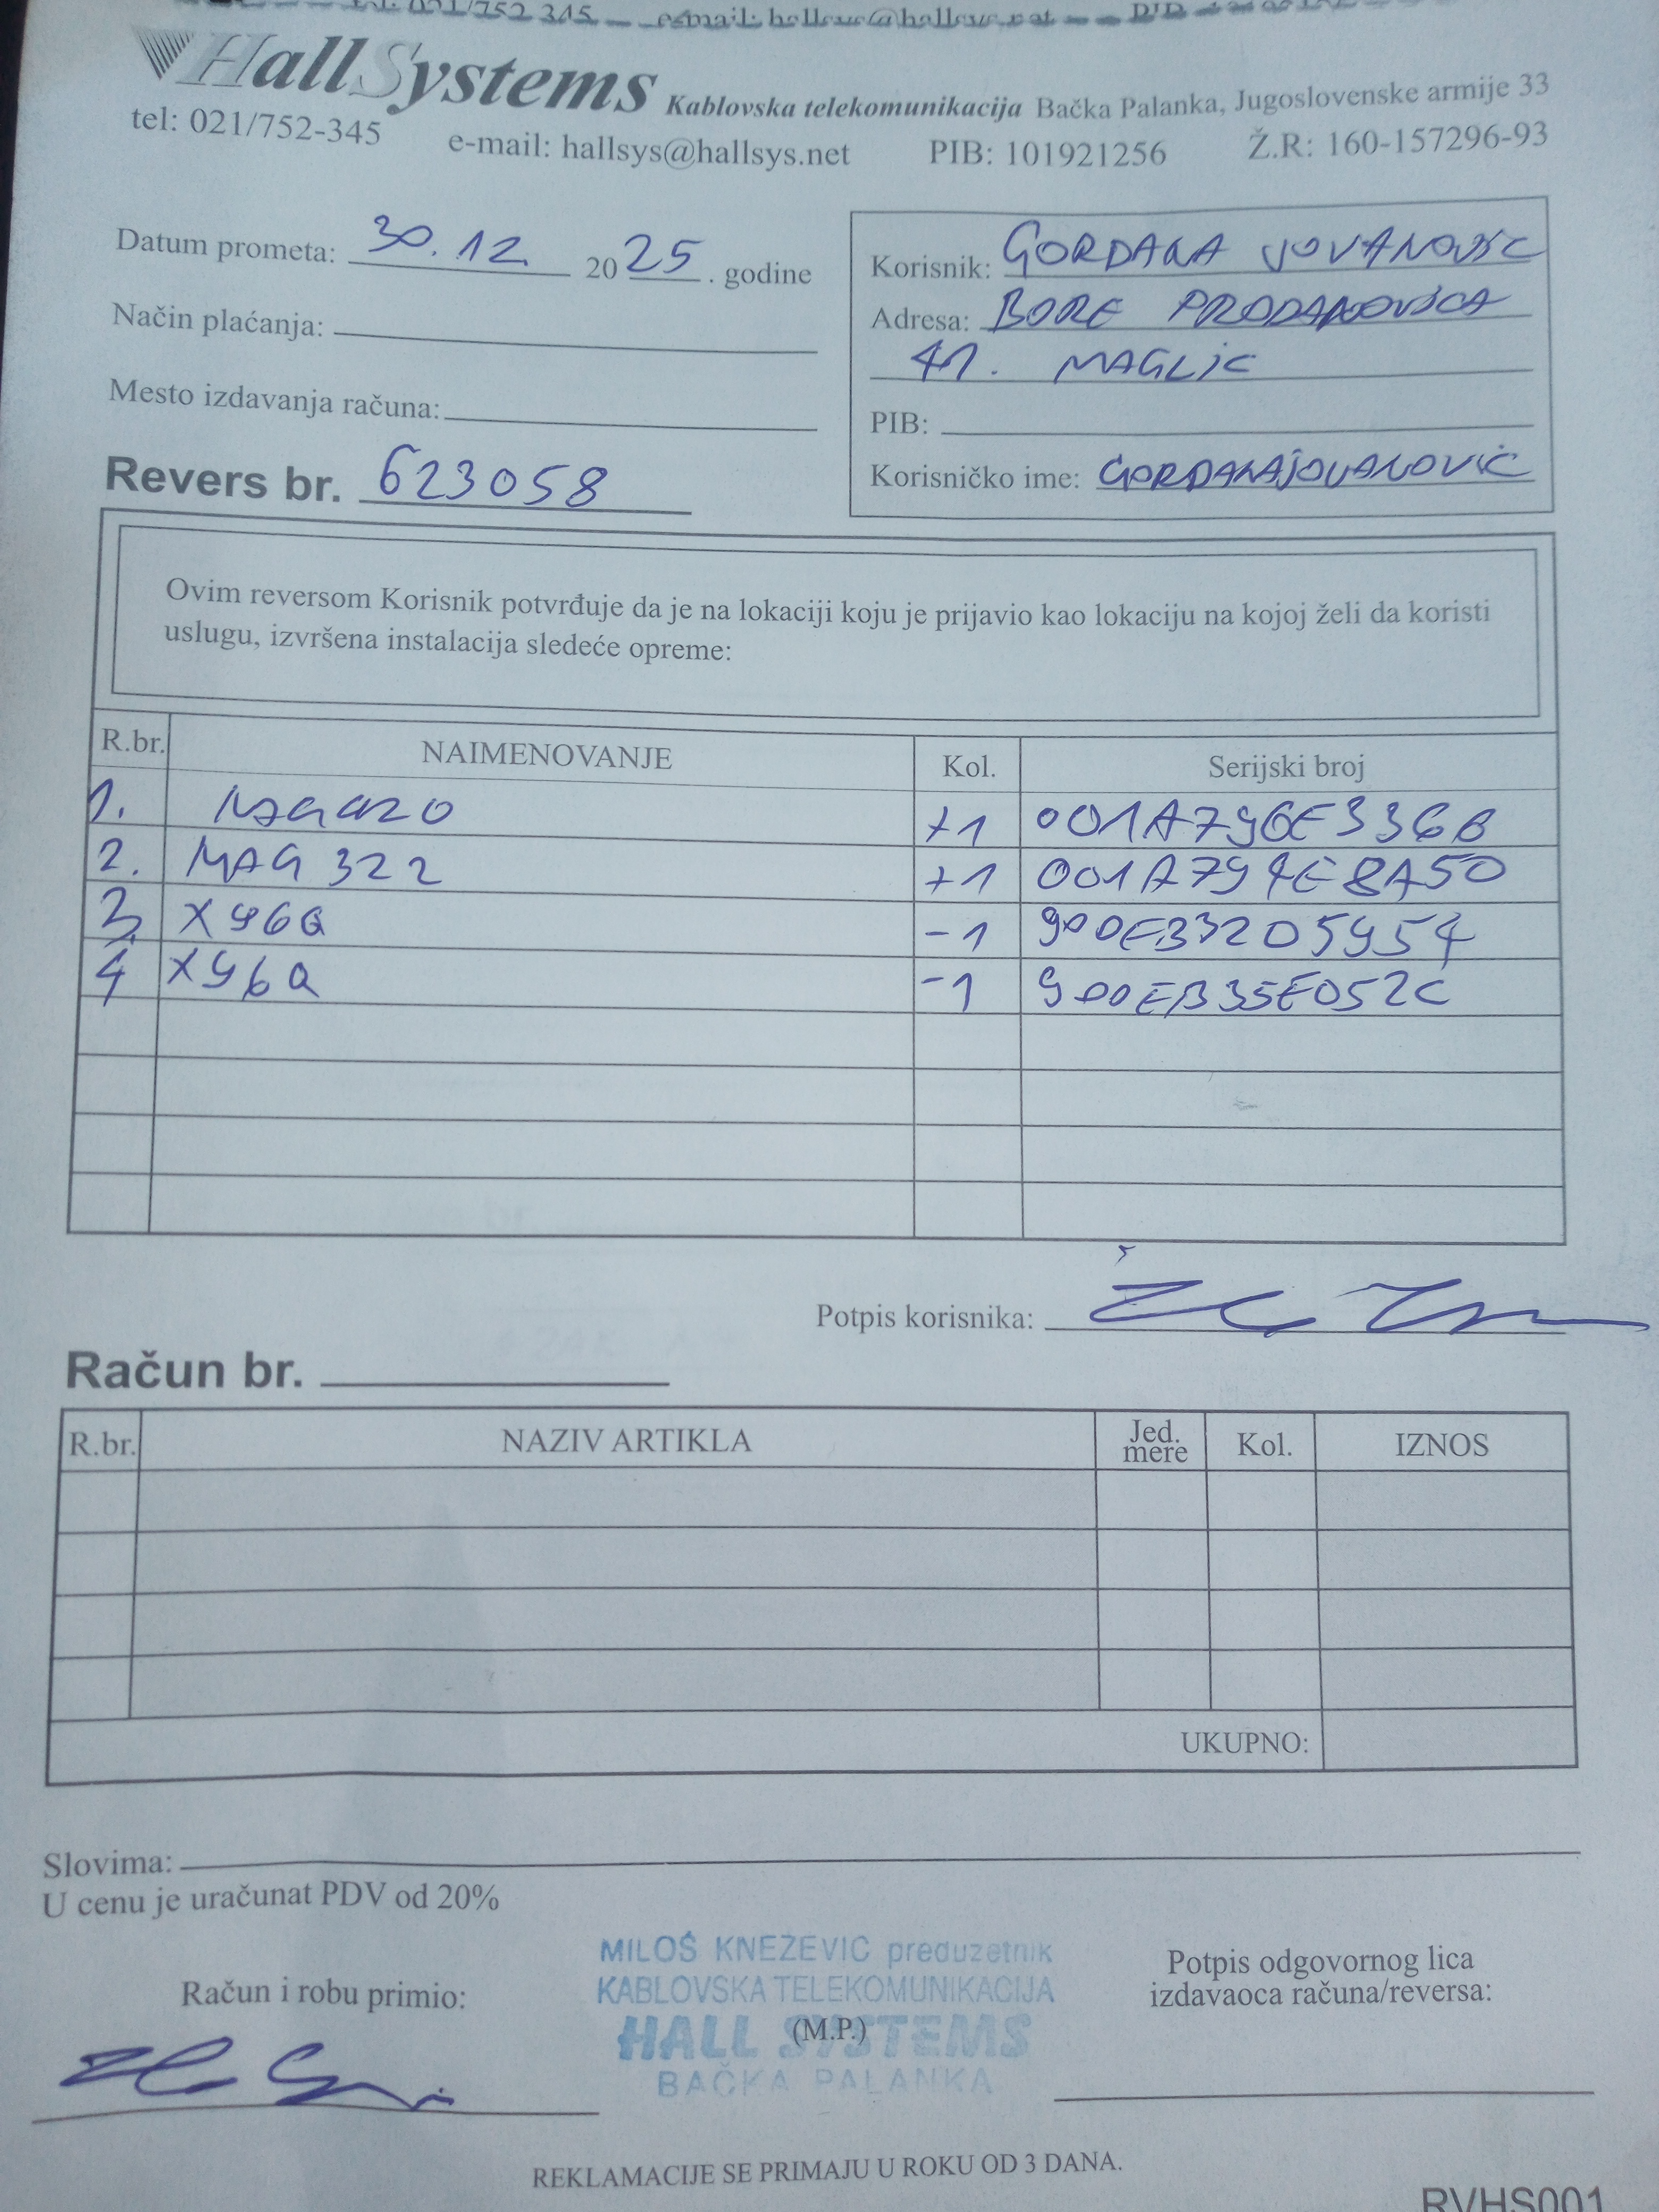 HallSystems Kablovska telekomunikacija Bačka Palanka, Jugoslovenske armije 33
tel: 021/752-345 e-mail: hallsys@hallsys.net PIB: 101921256 Ž.R: 160-157296-93
Datum prometa: 30.12. 2025. godine
Način plaćanja:
Mesto izdavanja računa:
Revers br. 623058
Korisnik: GORDANA JOVANOVIC
Adresa: BORE PRODANOVICA
41. MAGLIC
PIB:
Korisničko ime: GORDANAJOVANOVIC
Ovim reversom Korisnik potvrđuje da je na lokaciji koju je prijavio kao lokaciju na kojoj želi da koristi
uslugu, izvršena instalacija sledeće opreme:
R.br. NAIMENOVANJE Kol. Serijski broj
1. +1
2. MAG 322 +1 001A794E8A50
3. X96Q -1 900EB3205954
4 X96Q -1 900EB35E052C
Potpis korisnika:
Račun br.
R.br. NAZIV ARTIKLA Jed. mere Kol. IZNOS
UKUPNO:
Slovima:
U cenu je uračunat PDV od 20%
Račun i robu primio:
MILOŠ KNEŽEVIĆ preduzetnik
KABLOVSKA TELEKOMUNIKACIJA
HALL SYSTEMS
(M.P.)
BAČKA PALANKA
Potpis odgovornog lica
izdavaoca računa/reversa:
REKLAMACIJE SE PRIMAJU U ROKU OD 3 DANA.
RVHS001